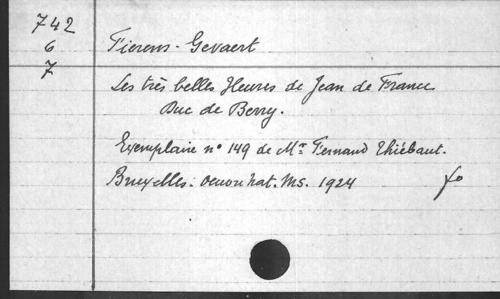 742
6
7
Fierens-Gevaert
Les très belles Heures de Jean de France
Duc de Berry.
Exemplaire n° 149 de Mr Fernand Thiébaut.
Bruxelles. Oeuvre nat. Ms. 1924
fo